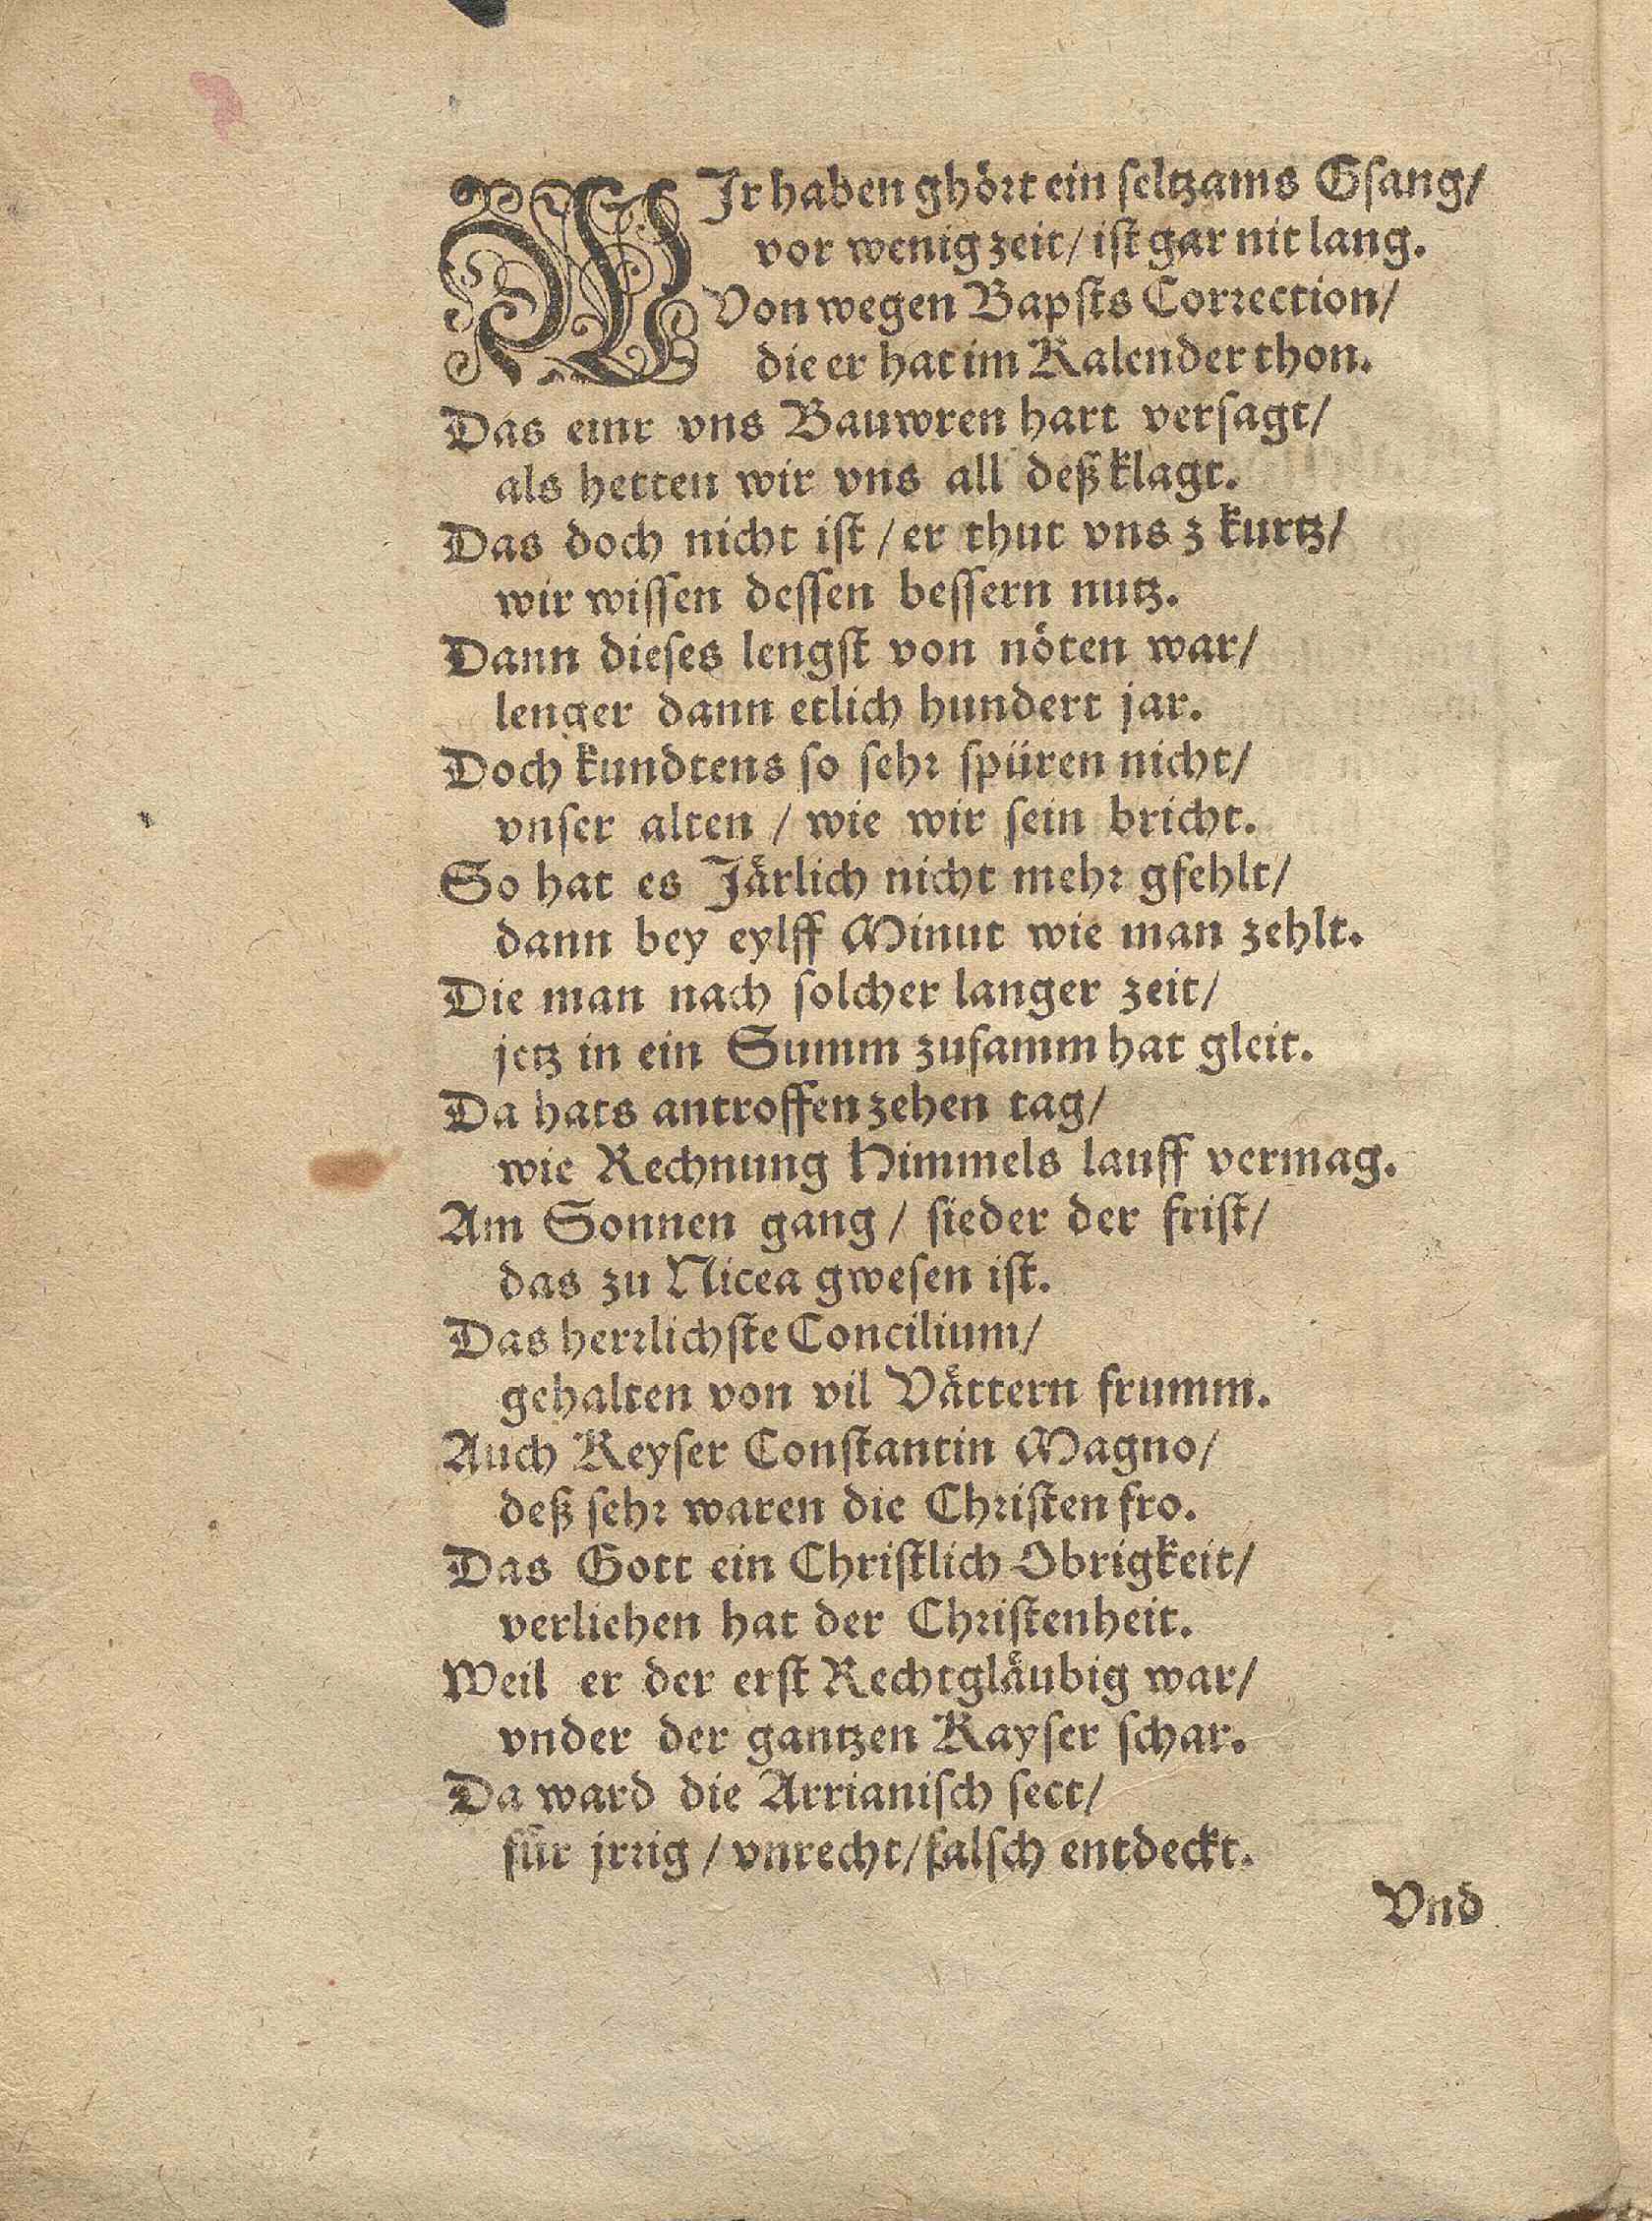 WIr haben ghört ein ſeltzams Gſang/
vor wenig zeit/ iſt gar nit lang.
Von wegen Bapſts Correction/
die er hat im Kalender thon.
Das einr vns Bauwren hart verſagt/
als hetten wir vns all deß klagt.
Das doch nicht iſt / er thut vns z kurtz/
wir wiſſen deſſen beſſern nutz.
Dann dieſes lengſt von nöten war/
lenger dann etlich hundert jar.
Doch kundtens ſo ſehr ſpüren nicht/
vnſer alten / wie wir ſein bricht.
So hat es Järlich nicht mehr gfehlt/
dann bey eylff Minut wie man zehlt.
Die man nach ſolcher langer zeit/
jetz in ein Summ zuſamm hat gleit.
Da hats antroffen zehen tag/
wie Rechnung Himmels lauff vermag.
Am Sonnen gang / ſieder der friſt/
das zu Nicea gweſen iſt.
Das herrlichſte Concilium/
gehalten von vil Vättern frumm.
Auch Keyſer Conſtantin Magno/
deß ſehr waren die Chriſten fro.
Das Gott ein Chriſtlich Obrigkeit/
verliehen hat der Chriſtenheit.
Weil er der erſt Rechtgläubig war/
vnder der gantzen Kayſer ſchar.
Da ward die Arrianiſch ſect/
für jrrig / vnrecht/ falſch entdeckt.
Vnd